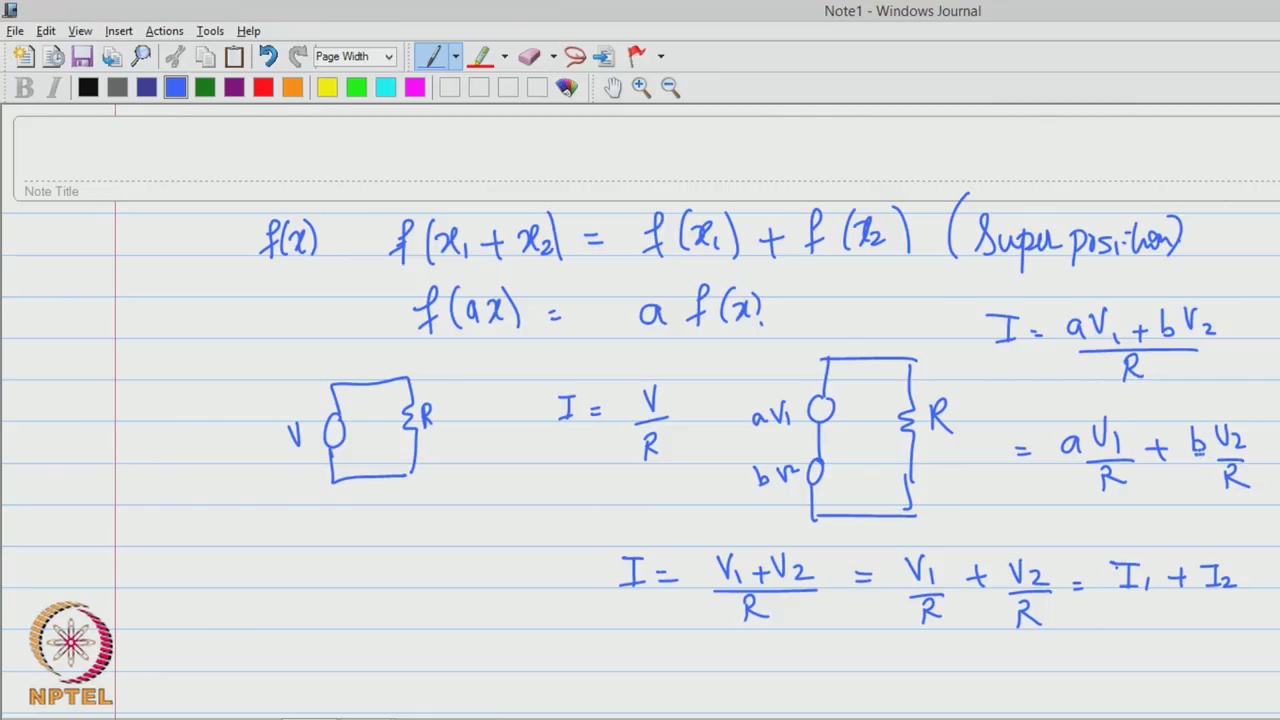 Note1 - Windows Journal
File Edit View Insert Actions Tools Help
Page Width
B I
Note Title
f(x) f(x₁ + x₂) = f(x₁) + f(x₂) (Superposition)
f(ax) = a f(x)
I = aV₁ + bV₂ / R
V R I = V / R aV₁ R
bV² = a V₁/R + b V₂/R
I = V₁ + V₂ / R = V₁/R + V₂/R = I₁ + I₂
NPTEL